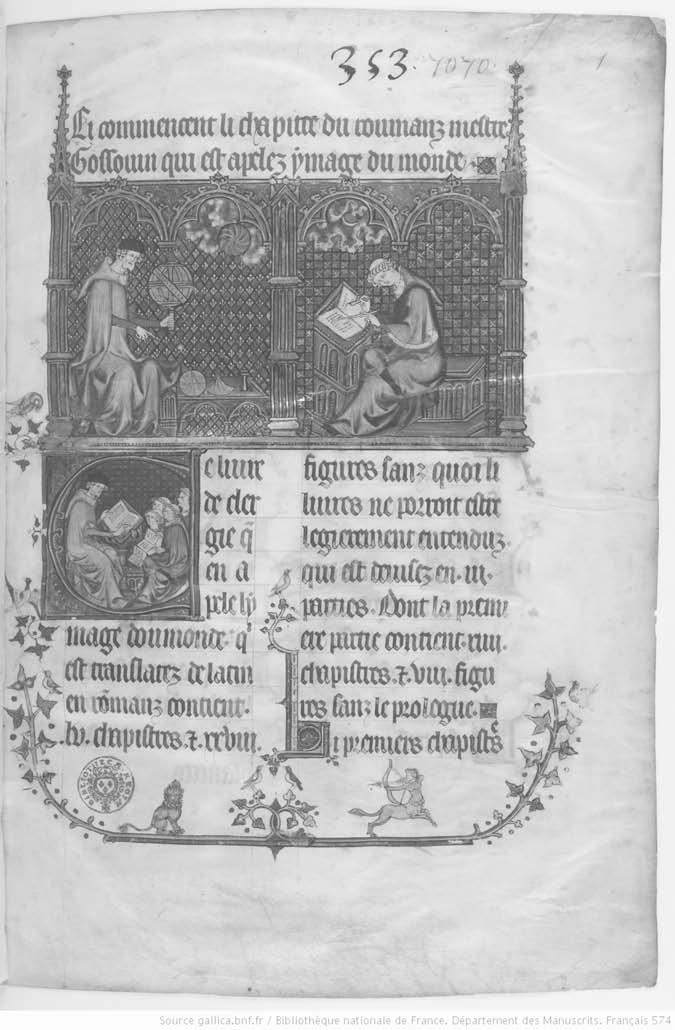 353. 7070. 1
Ci commencent li chapitre du roumanz mestre
Gossouin qui est apelez ymage du monde
Ce livre
de cler
gie q̃
en a
pele ly
mage dou monde. q̾
est translatez de latin
en rõmanz contient.
lv. chapistres. ⁊. xxviii.
figures sanz quoi li
livres ne porroit estre
legierement entenduz.
qui est devisez en .iii.
parties. Dont la premi
ere partie contient .xiiii.
chapistres. ⁊. viii. figu
res sanz le prologue.
Li premiers chapistẽs
BIBLIOTHECÆ REGIÆ
Source gallica.bnf.fr / Bibliothèque nationale de France. Département des Manuscrits. Français 574